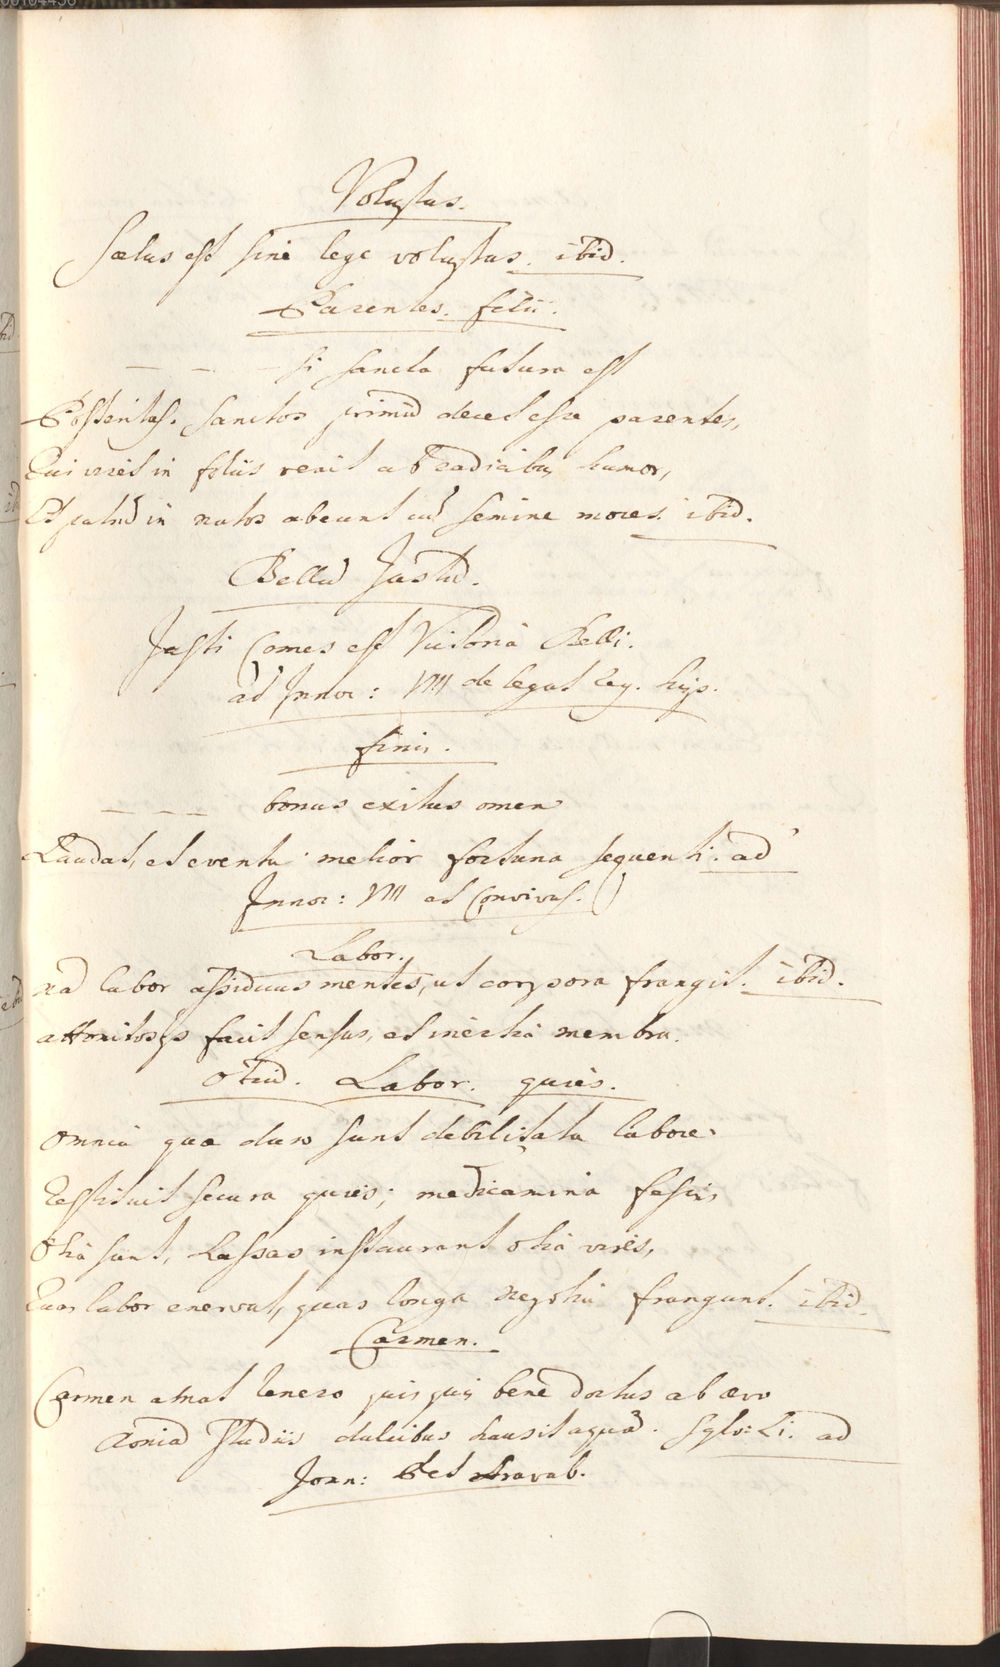 Voluptas.
Scelus est sine lege voluptas. ibid.
Parentes. filii.
_ _ _ si sancta futura est
Posteritas. sanctos primū decet esse parentes,
Qui viret in foliis venit ab radicibus humor,
Et patrū in natos abeunt cū semine mores. ibid.
Bellū Justū.
Justi Comes est Victoria Belli.
ad Innoc: VIII de legat reg. hisp.
finis.
_ _ _ bonus exitus omen
Laudat, et eventu melior fortuna sequenti. ad
Innoc: VIII ad Convivas.
Labor.
nā labor assiduus mentes, ut corpora frangit. ibid.
attonitosqs facit sensus, et inertia membra.
Otiū. Labor. quies.
Omnia quæ duro sunt debilitata labore
Restituit secura quies; medicamina fessis
Otia sunt, Lassas instaurant otia vires,
Quas labor enervat, quas longa negotia frangunt. ibid.
Carmen.
Carmen amat tenero quisquis bene doctus ab ævo
Aoniā studiis dulcibus hausit aquā. Sylv: Li. ad
Joan: Pet